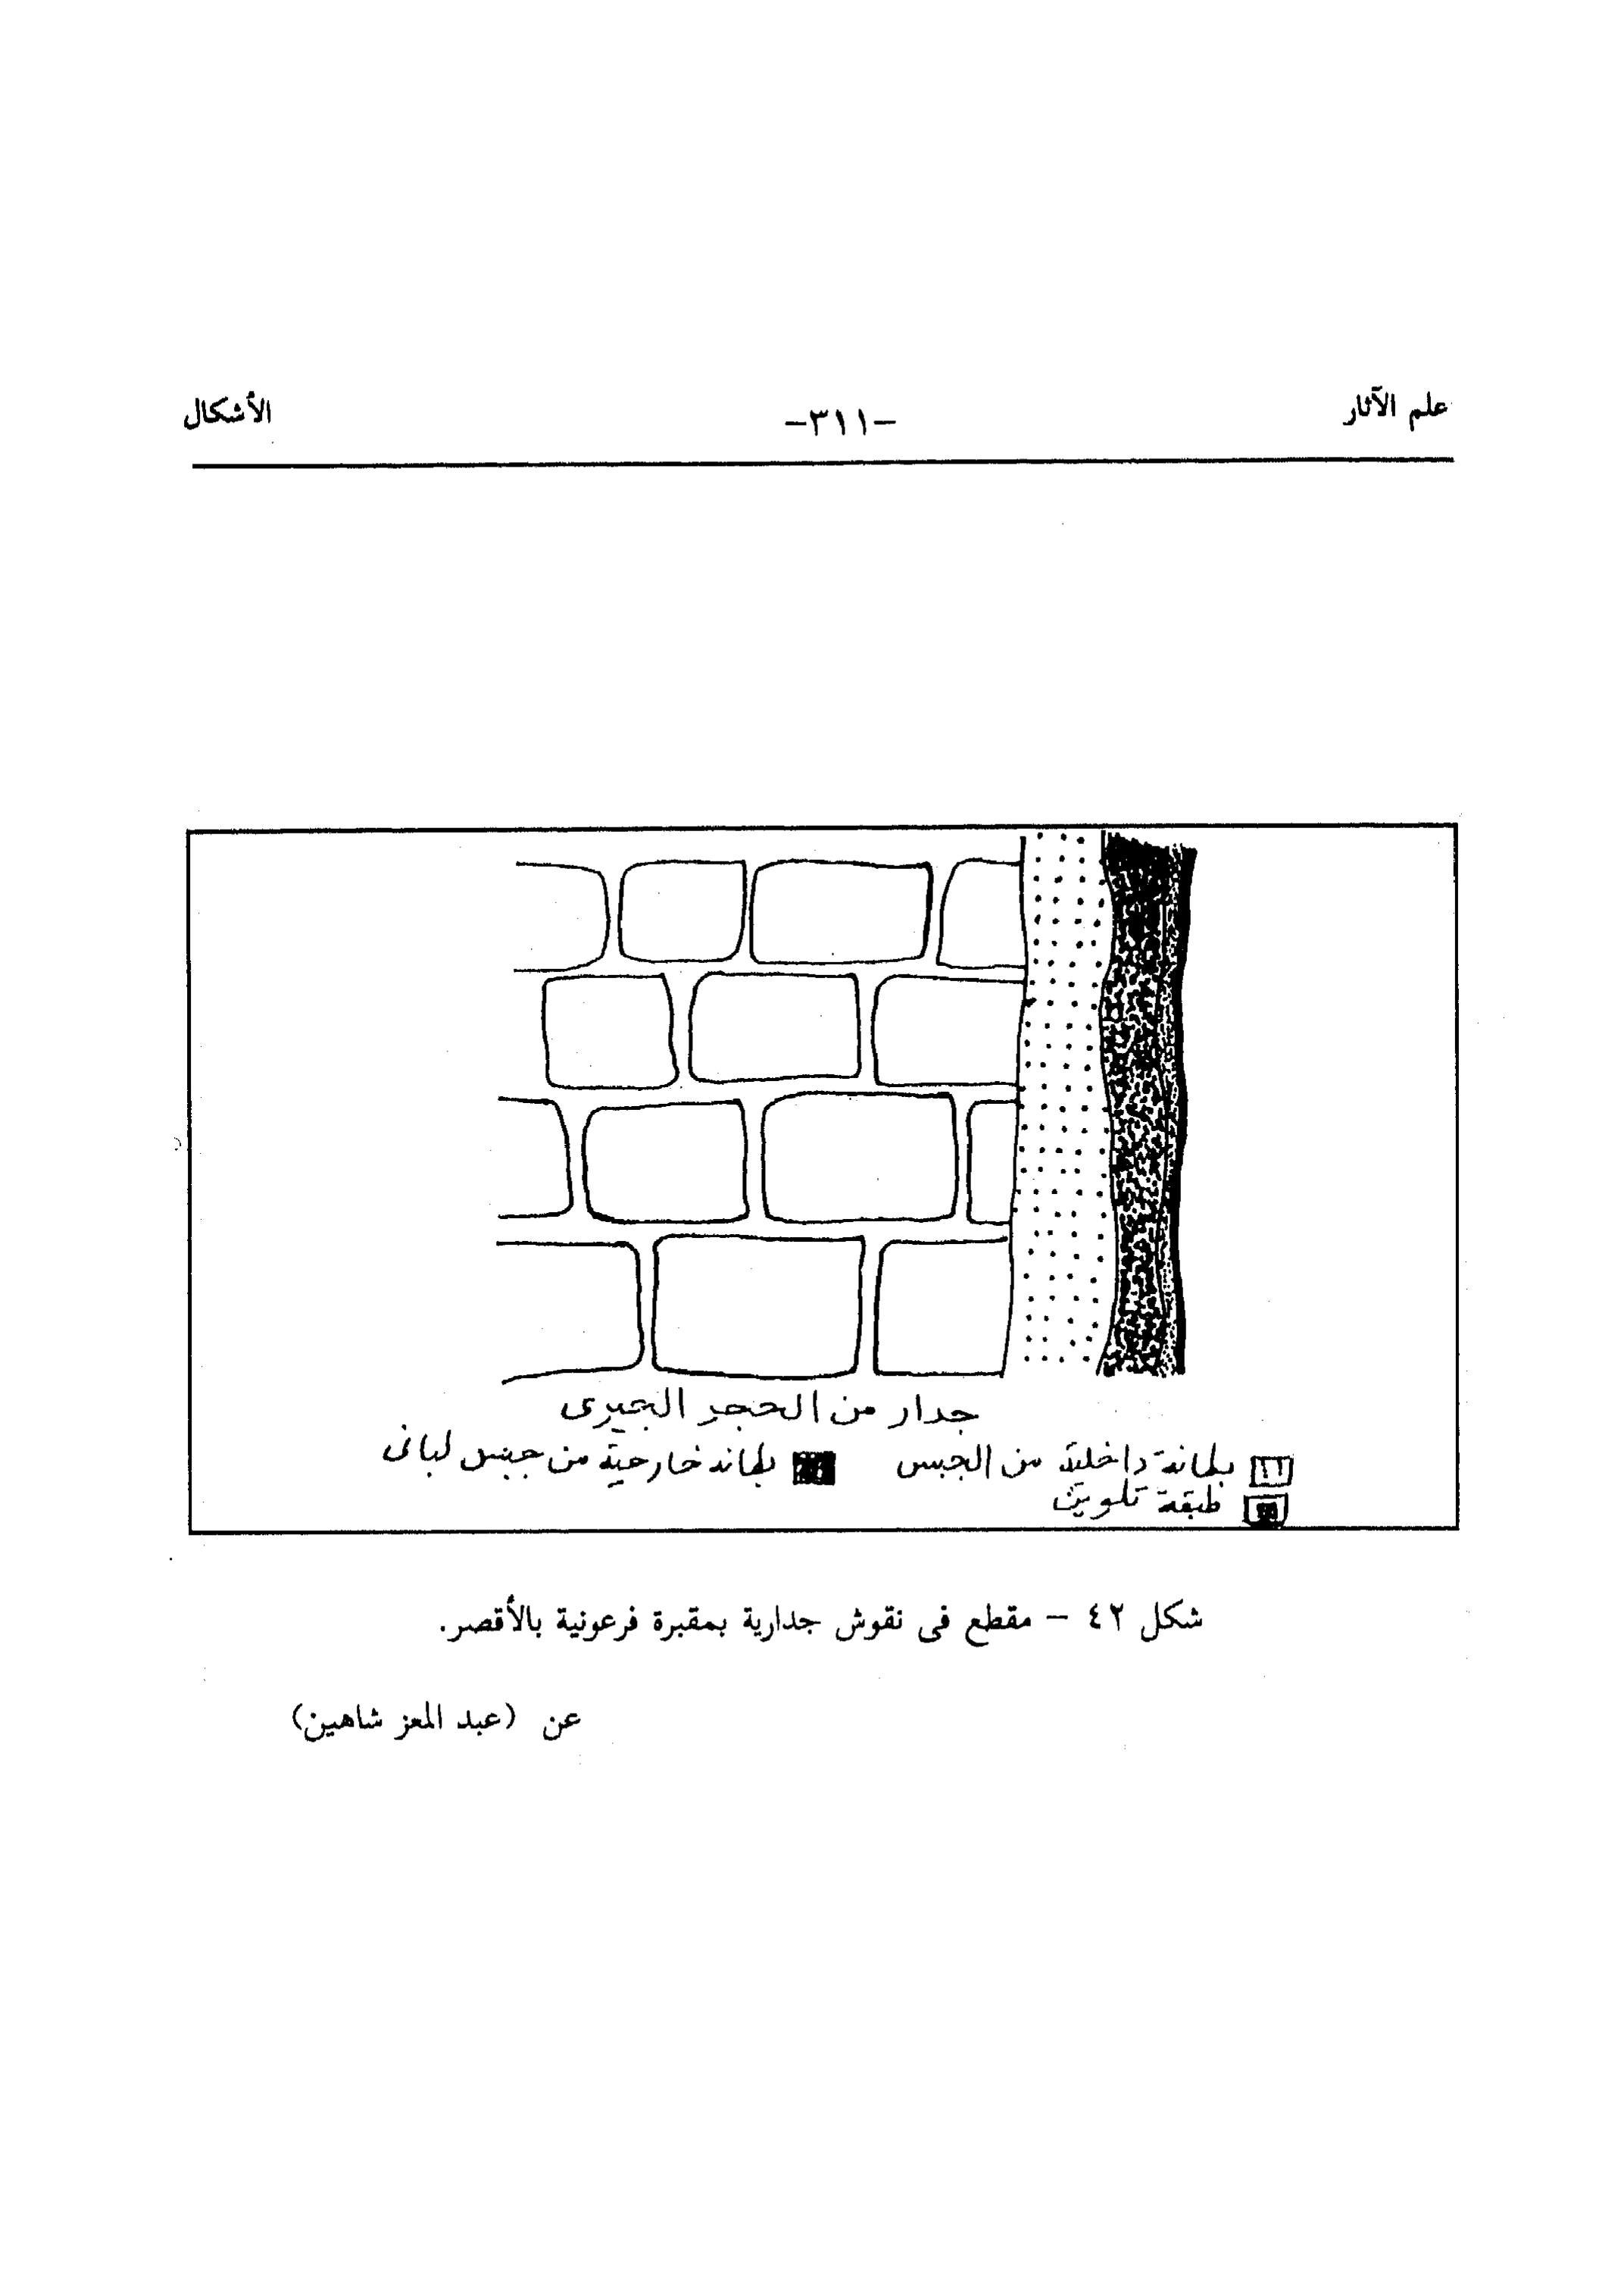 علم الآثار -٣١١- الأشكال
جدار من الحجر الجيرى
بطانة داخلية من الجبس بطانه خارجية من جبس لبانى
طبقة تلوين
شكل ٤٢ – مقطع فى نقوش جدارية بمقبرة فرعونية بالأقصر.
عن (عبد المعز شاهين)